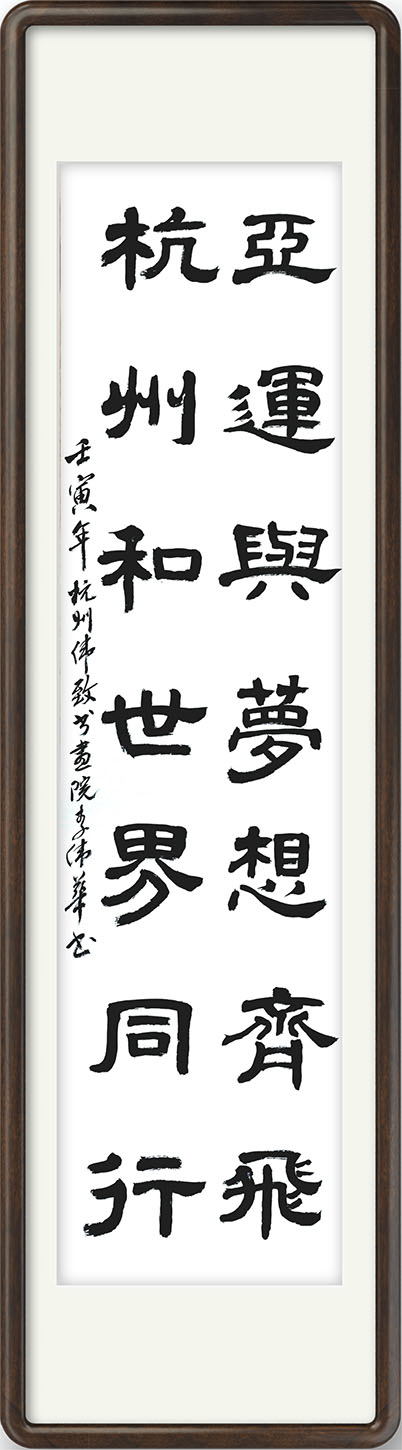 亞運與夢想齊飛
杭州和世界同行
壬寅年杭州伟致书画院李伟華书